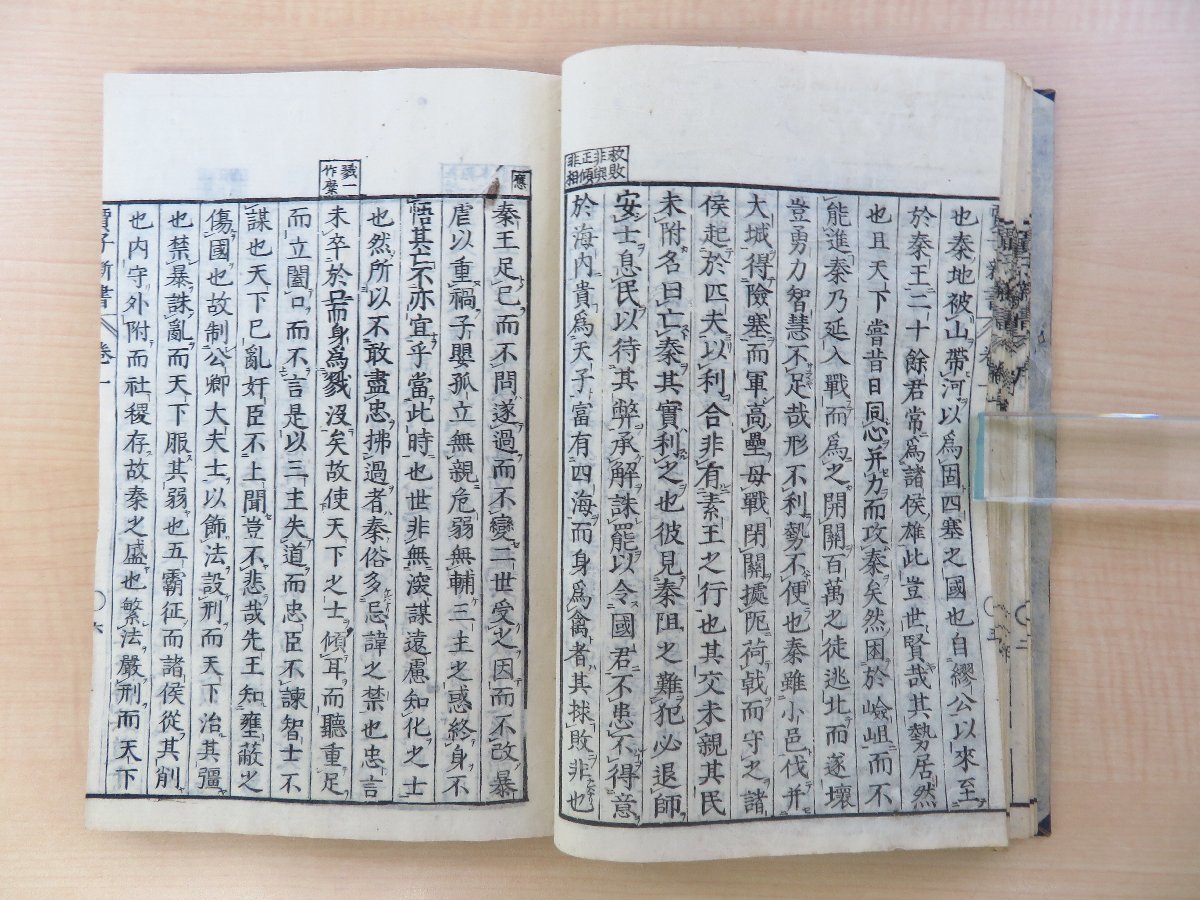 也秦地被山帶河以爲固四塞之國也自繆公以來至
於秦王二十餘君常爲諸侯雄此豈世賢哉其勢居然
也且天下嘗昔日同心并力而攻秦矣然困於嶮岨而不
能進秦乃延入戰而爲之開關百萬之徒逃北而遂壞
豈勇力智慧不足哉形不利勢不便也秦雖小邑伐并
大城得險塞而軍高壘毋戰閉關據阨荷戟而守之諸
侯起於匹夫以利合非有素王之行也其交未親其民
未附名曰亡秦其實利之也彼見秦阻之難犯必退師
安士息民以待其弊承解誅罷以令國君不患不得意
於海内貴爲天子富有四海而身爲禽者其捄敗非也
救敗
非與
正傾
非相
秦王足己而不問遂過而不變二世受之因而不改暴
虐以重禍子嬰孤立無親危弱無輔三主之惑終身不
悟其亡不亦宜乎當此時也世非無深謀遠慮知化之士
也然所以不敢盡忠拂過者秦俗多忌諱之禁也忠言
未卒於口而身爲戮沒矣故使天下之士傾耳而聽重足
而立闔口而不言是以三主失道而忠臣不諫智士不
謀也天下已亂奸臣不上聞豈不悲哉先王知壅蔽之
傷國也故制公卿大夫士以飾法設刑而天下治其彊
也禁暴誅亂而天下服其弱也五霸征而諸侯從其削
也内守外附而社稷存故秦之盛也繁法嚴刑而天下
戮一
作
賈子新書 卷一 六